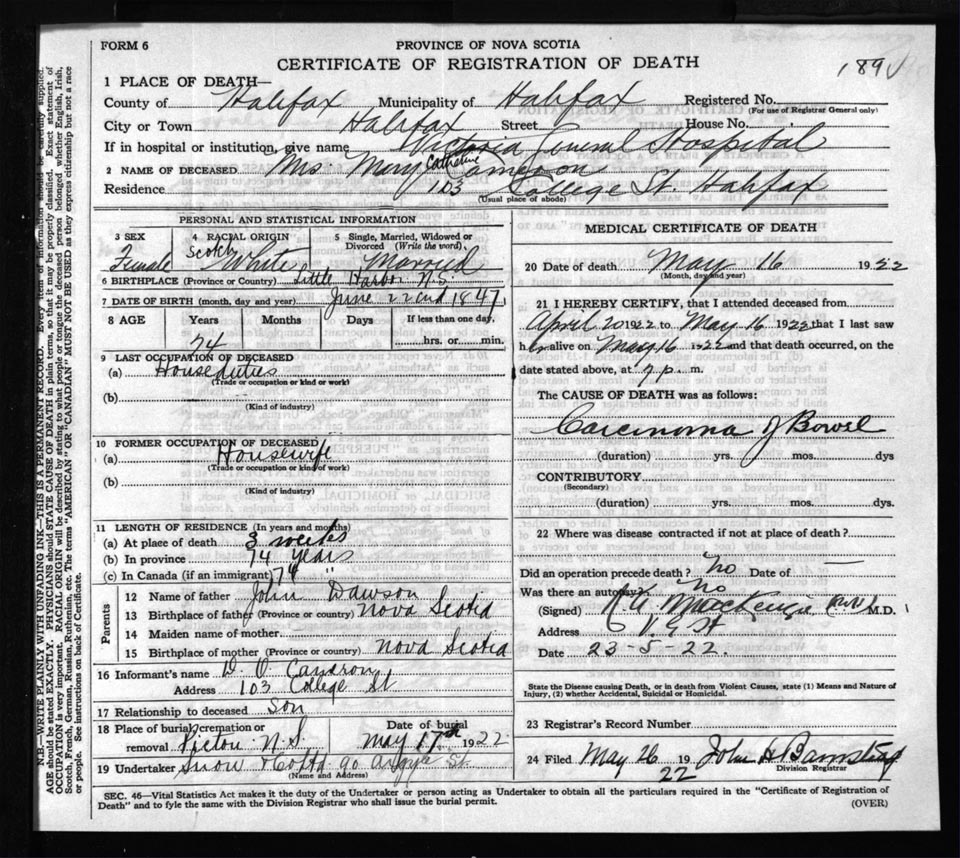 FORM 6
PROVINCE OF NOVA SCOTIA
CERTIFICATE OF REGISTRATION OF DEATH
189
1 PLACE OF DEATH—
County of Halifax Municipality of Halifax Registered No.
(For use of Registrar General only)
City or Town Halifax Street House No.
If in hospital or institution, give name Victoria General Hospital
2 NAME OF DECEASED Mrs. Mary Catherine Cameron
Residence 103 College St. Halifax
(Usual place of abode)
PERSONAL AND STATISTICAL INFORMATION
3 SEX 4 RACIAL ORIGIN 5 Single, Married, Widowed or Divorced (Write the word)
Female Scotch White Married
6 BIRTHPLACE (Province or Country) Little Harbor N.S
7 DATE OF BIRTH (month, day and year) June 22nd 1847
8 AGE Years Months Days If less than one day,
74 hrs. or min.
9 LAST OCCUPATION OF DECEASED
(a) Houseduties
(Trade or occupation or kind of work)
(b)
(Kind of industry)
10 FORMER OCCUPATION OF DECEASED
(a) Housewife
(Trade or occupation or kind of work)
(b)
(Kind of industry)
11 LENGTH OF RESIDENCE (In years and months)
(a) At place of death 3 weeks
(b) In province 74 years
(c) In Canada (if an immigrant) 74 "
Parents
12 Name of father John Dawson
13 Birthplace of father (Province or country) Nova Scotia
14 Maiden name of mother
15 Birthplace of mother (Province or country) Nova Scotia
16 Informant's name D. O. Cameron
Address 103 College St
17 Relationship to deceased Son
18 Place of burial, cremation or removal Pictou N.S. Date of burial May 17th 1922
19 Undertaker Snow & Co Ltd 90 Argyle St.
(Name and Address)
MEDICAL CERTIFICATE OF DEATH
20 Date of death May 16 1922
(Month, day and year)
21 I HEREBY CERTIFY, that I attended deceased from
April 20 1922 to May 16 1922 that I last saw
her alive on May 16 1922 and that death occurred, on the
date stated above, at 7 p. m.
The CAUSE OF DEATH was as follows:
Carcinoma of Bowel
(duration) yrs. mos. dys
CONTRIBUTORY
(Secondary)
(duration) yrs. mos. dys.
22 Where was disease contracted if not at place of death?
Did an operation precede death? no Date of —
Was there an autopsy? no
(Signed) MacKenzie M.D.
Address V G H
Date 23-5-22.
State the Disease causing Death, or in death from Violent Causes, state (1) Means and Nature of
Injury, (2) whether Accidental, Suicidal or Homicidal.
23 Registrar's Record Number
24 Filed May 26 1922 John H Barnstead
Division Registrar
SEC. 46—Vital Statistics Act makes it the duty of the Undertaker or person acting as Undertaker to obtain all the particulars required in the "Certificate of Registration of
Death" and to fyle the same with the Division Registrar who shall issue the burial permit.
(OVER)
N.B.—WRITE PLAINLY WITH UNFADING INK—THIS IS A PERMANENT RECORD. Every item of information should be carefully supplied.
AGE should be stated EXACTLY. PHYSICIANS should STATE CAUSE OF DEATH in plain terms, so that it may be properly classified. Exact statement of
OCCUPATION is very important. RACIAL ORIGIN will be described by stating to what people or tongue the deceased person belonged, whether English, Irish,
Scotch, French, German, Russian, Ruthenian, etc. The terms "AMERICAN" OR "CANADIAN" MUST NOT BE USED as they express citizenship but not a race
or people. See instructions on back of Certificate.